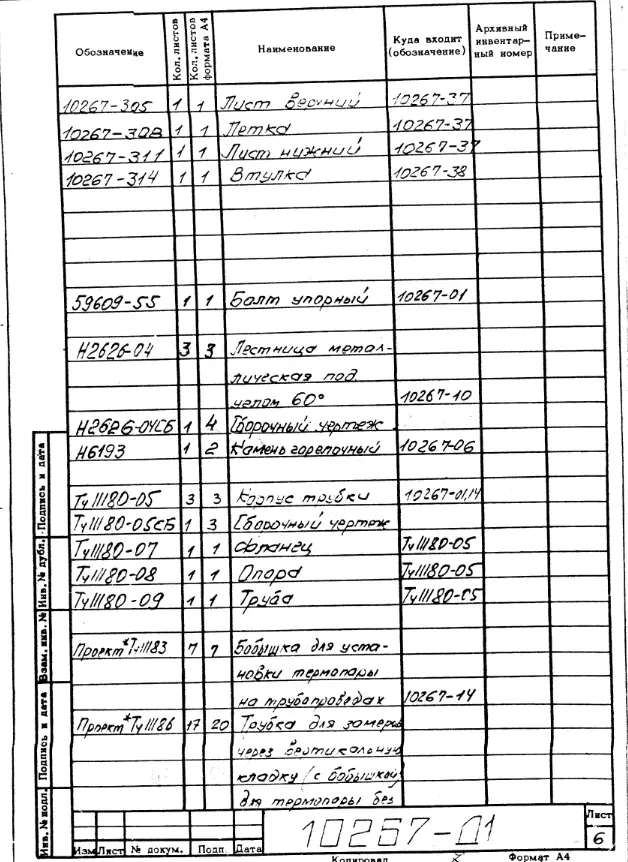 Обозначение Кол. листов Кол. листов формата А4 Наименование Куда входит (обозначение) Архивный инвентар- ный номер Приме- чание
10267-305 1 1 Лист верхний 10267-37
10267-308 1 1 Летка 10267-37
10267-311 1 1 Лист нижний 10267-37
10267-314 1 1 Втулка 10267-38
59609-55 1 1 Болт упорный 10267-01
Н2626-04 3 3 Лестница метал-
лическая под
углом 60° 10267-10
Н2626-04СБ 1 4 Сборочный чертеж
Н6193 1 2 Камень горелочный 10267-06
Ту111180-05 3 3 Корпус трубки 10267-01,14
Ту111180-05СБ 1 3 Сборочный чертеж
Ту111180-07 1 1 Фланец Ту111180-05
Ту111180-08 1 1 Опора Ту111180-05
Ту111180-09 1 1 Труба Ту111180-05
Проект Ту111183 7 7 Бобышка для уста-
новки термопары
на трубопроводах 10267-14
Проект Ту111186 17 20 Трубка для замера
через вертикальную
кладку (с бобышкой
для термопары без
Инв. № подл. Подпись и дата Взам. инв. № Инв. № дубл. Подпись и дата
10267-Д1
Лист
6
Изм Лист № докум. Подп. Дата
Копировал Формат А4